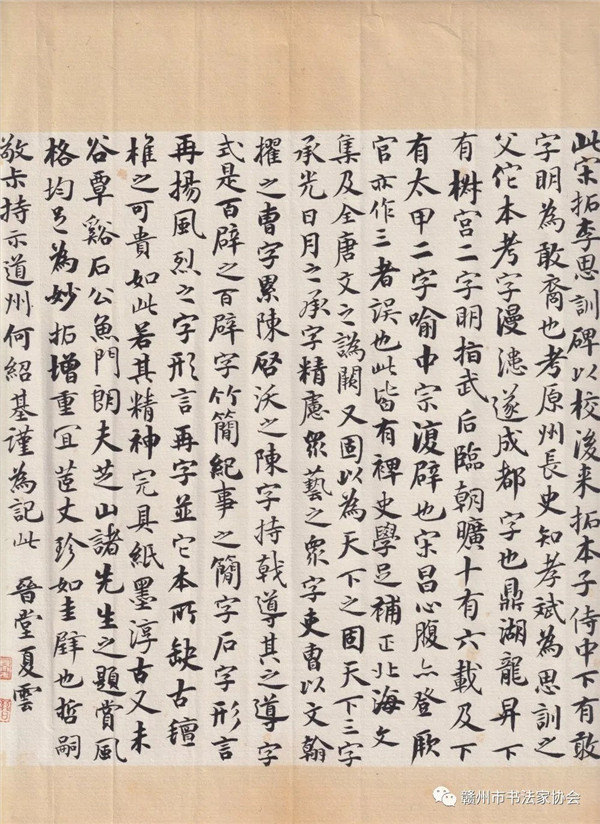 此宋拓李思訓碑以校後来拓本子侍中下有敢
字明為敢裔也考原州長史知孝斌為思訓之
父佗本考字漫漶遂成都字也鼎湖龍昇下
有椒宫二字明指武后臨朝曠十有六載及下
有太甲二字喻中宗復辟也宋昌心腹亦登厥
官亦作三者誤也此皆有裨史學足補正北海文
集及全唐文之譌闕又固以為天下之固天下三字
承光日月之承字精慮眾藝之眾字吏曹以文翰
擢之曹字累陳啓沃之陳字持戟導其之導字
式是百辟之百辟字竹簡紀事之簡字后字形言
再揚風烈之字形言再字並它本所缺古氊
椎之可貴如此若其精神完具紙墨淳古又未
谷覃谿石公魚門朗夫芝山諸先生之題賞風
格均足為妙拓增重冝茝丈珍如圭璧也哲嗣
敬卡持示道州何紹基謹為記此 晉堂夏雲
赣州市书法家协会